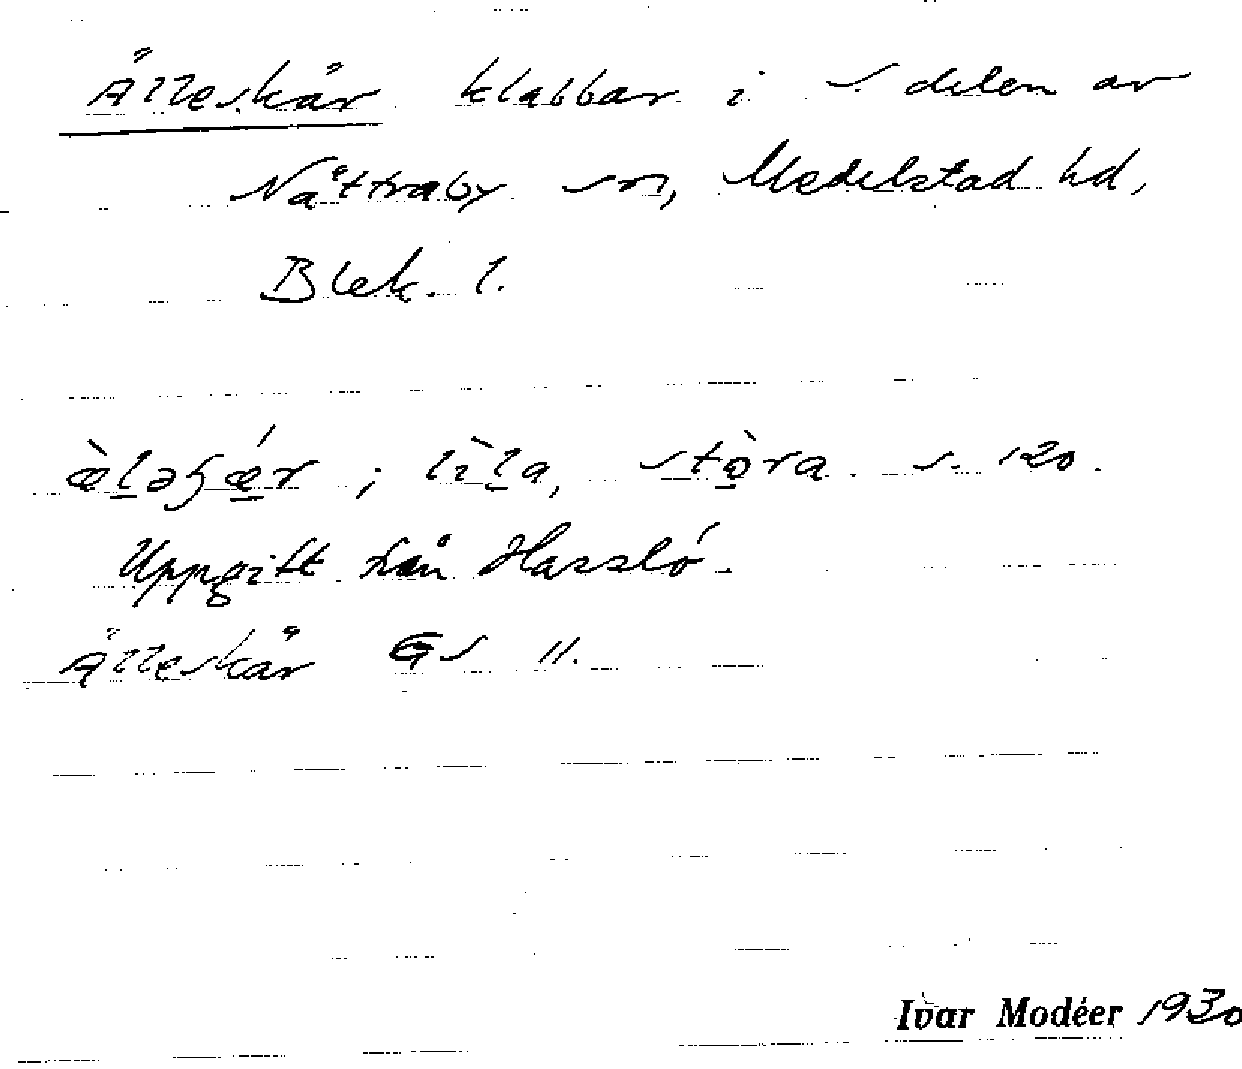 Älleskär klabbar i s delen av
Nättraby sn, Medelstad hd,
Blek. l.
æ̀ḷəɧǽr ; lìḷa, stọ̀ra s. 120.
Uppgift från Hasslö.
Älleskär GS 11.
Ivar Modéer 1930